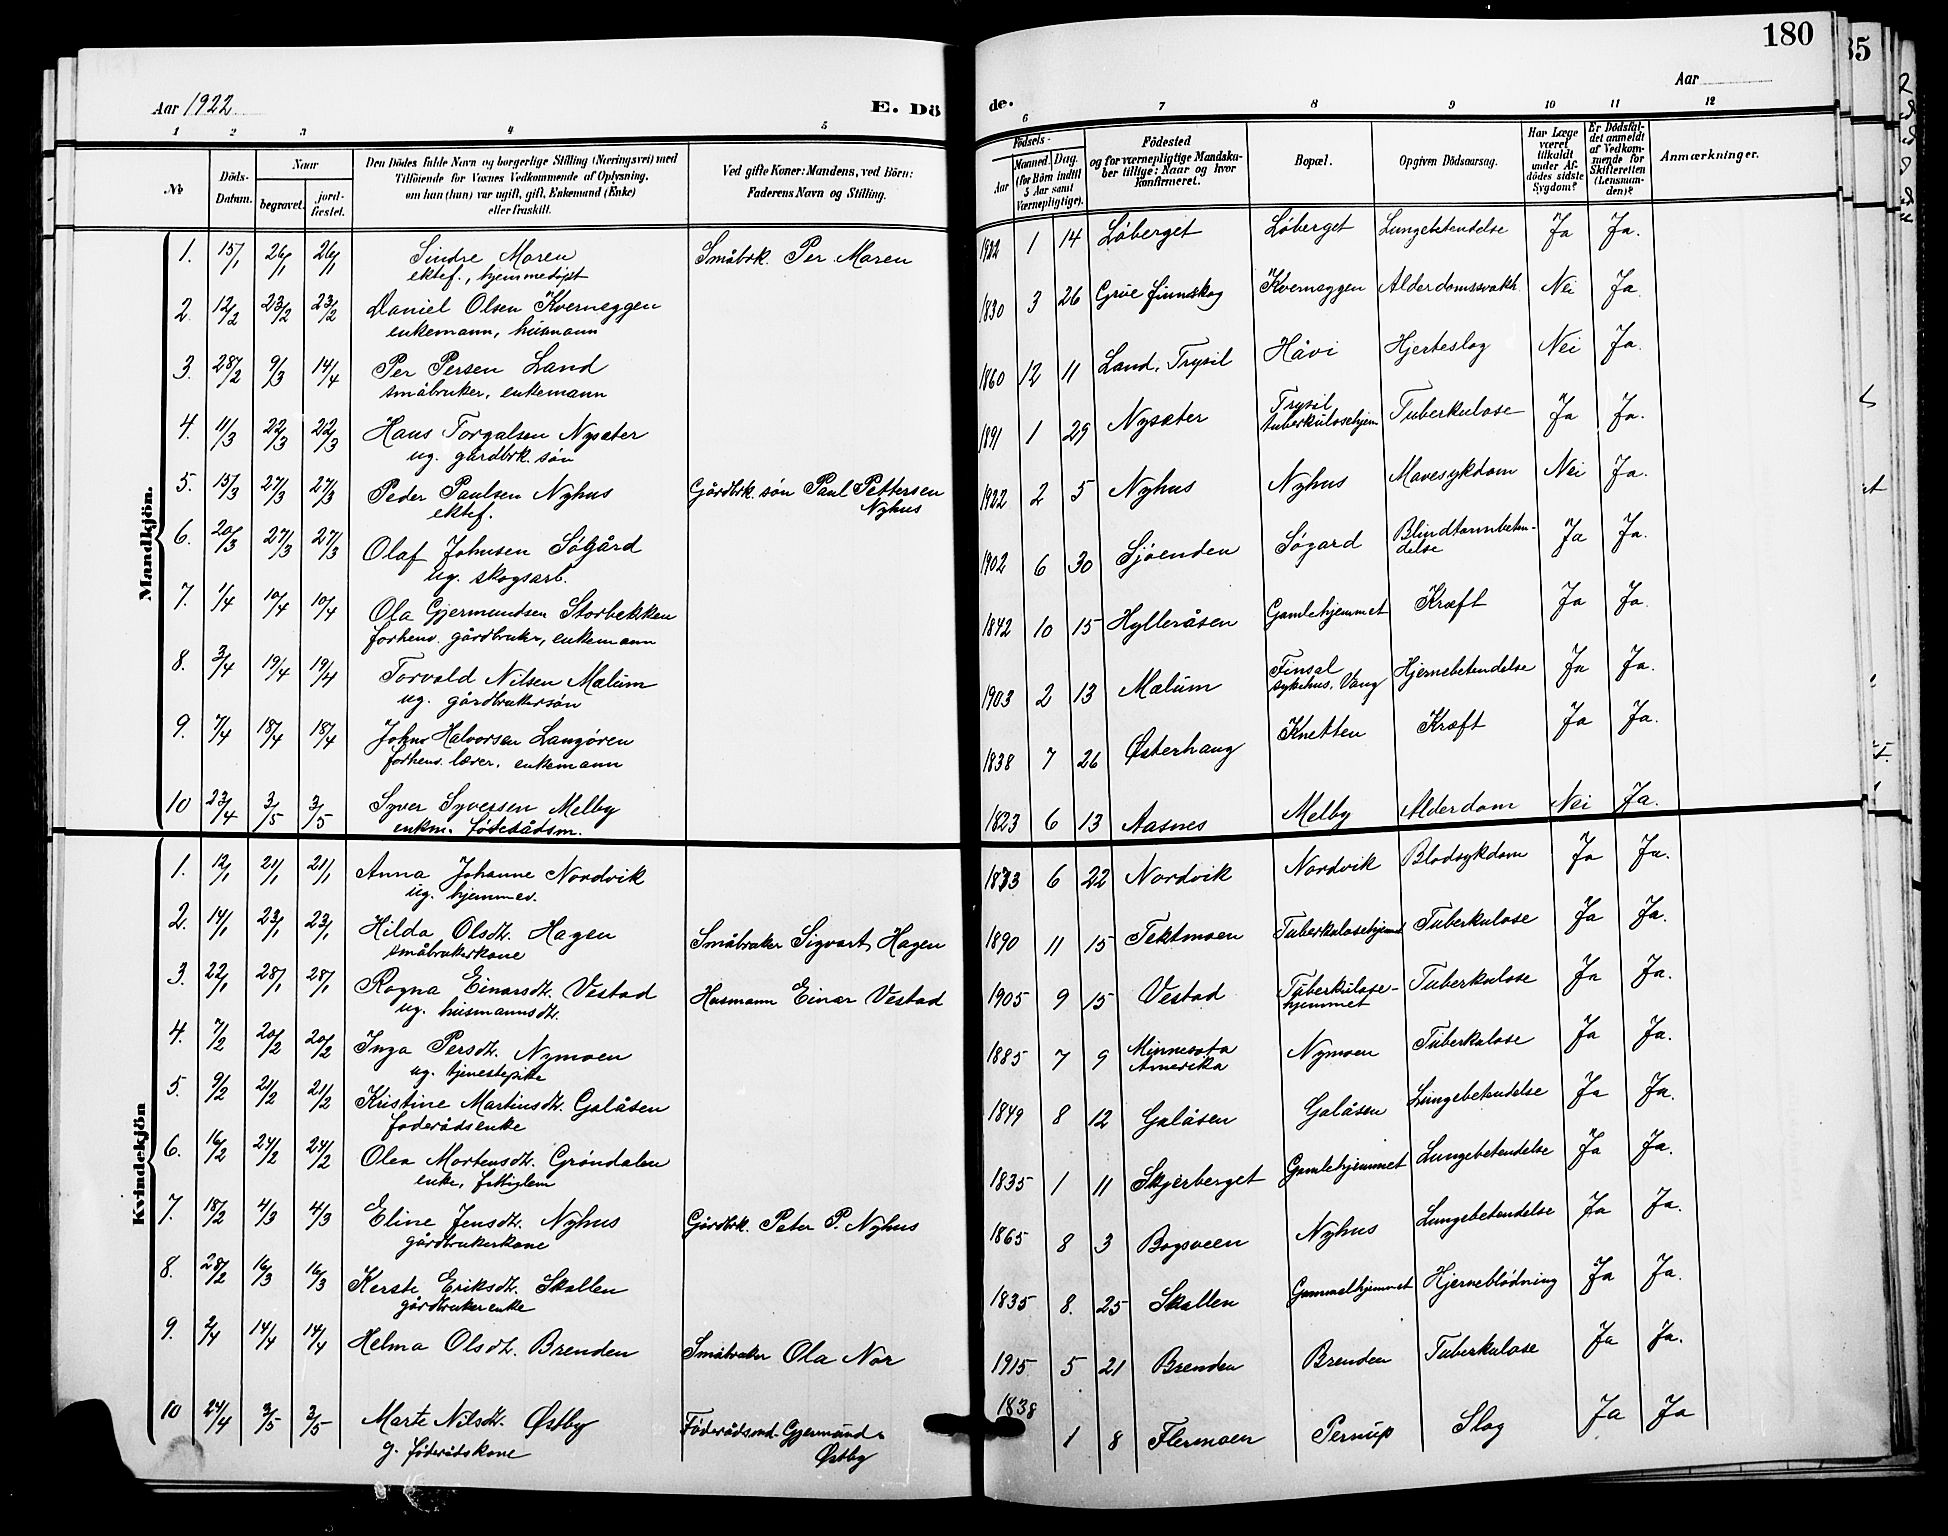 180
Aar 1922
E. Dö
de.
Aar
1 2 3 4 5
6 7 8 9 10 11 12
No
Döds-Datum.
Naar
begravet.
jordfæstet.
Den Dödes fulde Navn og borgerlige Stilling (Næringsvei) med
Tilföiende for Voxnes Vedkommende af Oplysning,
om han (hun) var ugift, gift, Enkemand (Enke)
eller fraskilt.
Ved gifte Koner: Mandens, ved Börn:
Faderens Navn og Stilling.
Födsels-
Aar
Maaned. Dag.
(for Börn indtil
5 Aar samt
Værnepligtige).
Födested
og for værnepligtige Mandskaber tillige: Naar og hvor
konfirmeret.
Bopæl.
Opgiven Dödsaarsag.
Har Læge
været
tilkaldt
under Afdödes sidste
Sygdom?
Er Dödsfaldet anmeldt
af Vedkommende for
Skifteretten
(Lensmanden)?
Anmærkninger.
Mandkjön.
1. 15/1 26/1 26/1 Sindre Moren Småbrk. Per Moren 1922 1 14 Løberget Løberget Lungebetendelse Ja Ja.
ektef., hjemmedøpt
2. 12/2 23/2 23/2 Daniel Olsen Kverneggen 1830 3 26 Grue finnskog Kverneggen Alderdomssvakh. Nei Ja.
enkemann, husmann
3. 28/2 9/3 14/4 Per Persen Land 1860 12 11 Land, Trysil Håvi Hjerteslag Nei Ja.
småbruker, enkemann
4. 11/3 22/3 22/3 Hans Torgalsen Nysæter 1891 1 29 Nysæter Trysil tuberkulosehjem Tuberkulose Ja Ja.
ug. gårdbrk. søn
5. 15/3 27/3 27/3 Peder Paulsen Nyhus Gårdbrk. søn Paul Pettersen Nyhus 1922 2 5 Nyhus Nyhus Mavesykdom Nei Ja.
ektef.
6. 20/3 27/3 27/3 Olaf Johnsen Søgård 1902 6 30 Sjøenden Søgard Blindtarmbetendelse Ja Ja.
ug. skogsarb.
7. 1/4 10/4 10/4 Ola Gjermundsen Storbekken 1842 10 15 Hylleråsen Gamlehjemmet Kræft Ja Ja.
forhenv. gårdbruker, enkemann
8. 3/4 19/4 19/4 Torvald Nilsen Mælum 1903 2 13 Mælum Finsal sykehus, Vang Hjernebetendelse Ja Ja.
ug. gårdbrukersøn
9. 7/4 18/4 18/4 Johns Halvorsen Langøren 1838 7 26 Østerhaug Knetten Kræft Ja Ja.
forhenv. lærer, enkemann
10 23/4 3/5 3/5 Syver Syversen Melby 1823 6 13 Aasnes Melby Alderdom Nei Ja.
enkm. føderådsm.
Kvindekjön
1. 12/1 21/1 21/1 Anna Johanne Nordvik 1873 6 22 Nordvik Nordvik Blodsykdom Ja Ja.
ug. hjemmev.
2. 14/1 23/1 23/1 Hilda Olsdt. Hagen Småbruker Sigvart Hagen 1890 11 15 Tektmoen Tuberkulosehjemmet Tuberkulose Ja Ja.
småbrukerkone
3. 22/1 28/1 28/1 Rogna Einarsdt. Vestad Husmann Einar Vestad 1905 9 15 Vestad Tuberkulose-hjemmet Tuberkulose Ja Ja.
ug. husmannsdt.
4. 7/2 20/2 20/2 Inga Persdt. Nymoen 1885 7 9 Minnesota Amerika Nymoen Tuberkulose Ja Ja.
ug. tjenestepike
5. 9/2 21/2 21/2 Kristine Martinsdt. Galåsen 1849 8 12 Galåsen Galåsen Lungebetendelse Ja Ja.
føderådsenke
6. 16/2 24/2 24/2 Olea Mortensdt. Grøndalen 1835 1 11 Skjærberget Gamlehjemmet Lungebetendelse Ja Ja.
enke, fattiglem
7. 18/2 4/3 4/3 Eline Jensdt. Nyhus Gårdbrk. Peter P. Nyhus 1865 8 3 Bogsveen Nyhus Lungebetendelse Ja Ja.
gårdbrukerkone
8. 28/2 16/3 16/3 Kerste Eriksdt. Skallen 1835 8. 25 Skallen Gammelhjemmet Hjerneblødning Ja Ja.
gårdbrukerenke
9. 2/4 14/4 14/4 Helma Olsdt. Brenden Småbruker Ola Nor 1915 5 21 Brenden Brenden Tuberkulose Ja Ja.
10 24/4 3/5 3/5 Marte Nilsdt. Østby Føderådsmd. Gjermund Østby 1838 1 8 Flermoen Pernup Slag Ja Ja
g. føderådskone